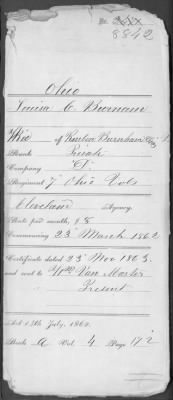 No.
8842
Ohio
Louisa C. Burnham
Wid of Reuben Burnham
Rank Private
Company "A"
Regiment 7" Ohio Vols
Cleveland Agency.
Rate per month, $8
Commencing 23" March 1862
Certificate dated 23" Nov 1863.
and sent to Van
Present
Act 14th July, 1862.
Book A Vol. 4 Page 172